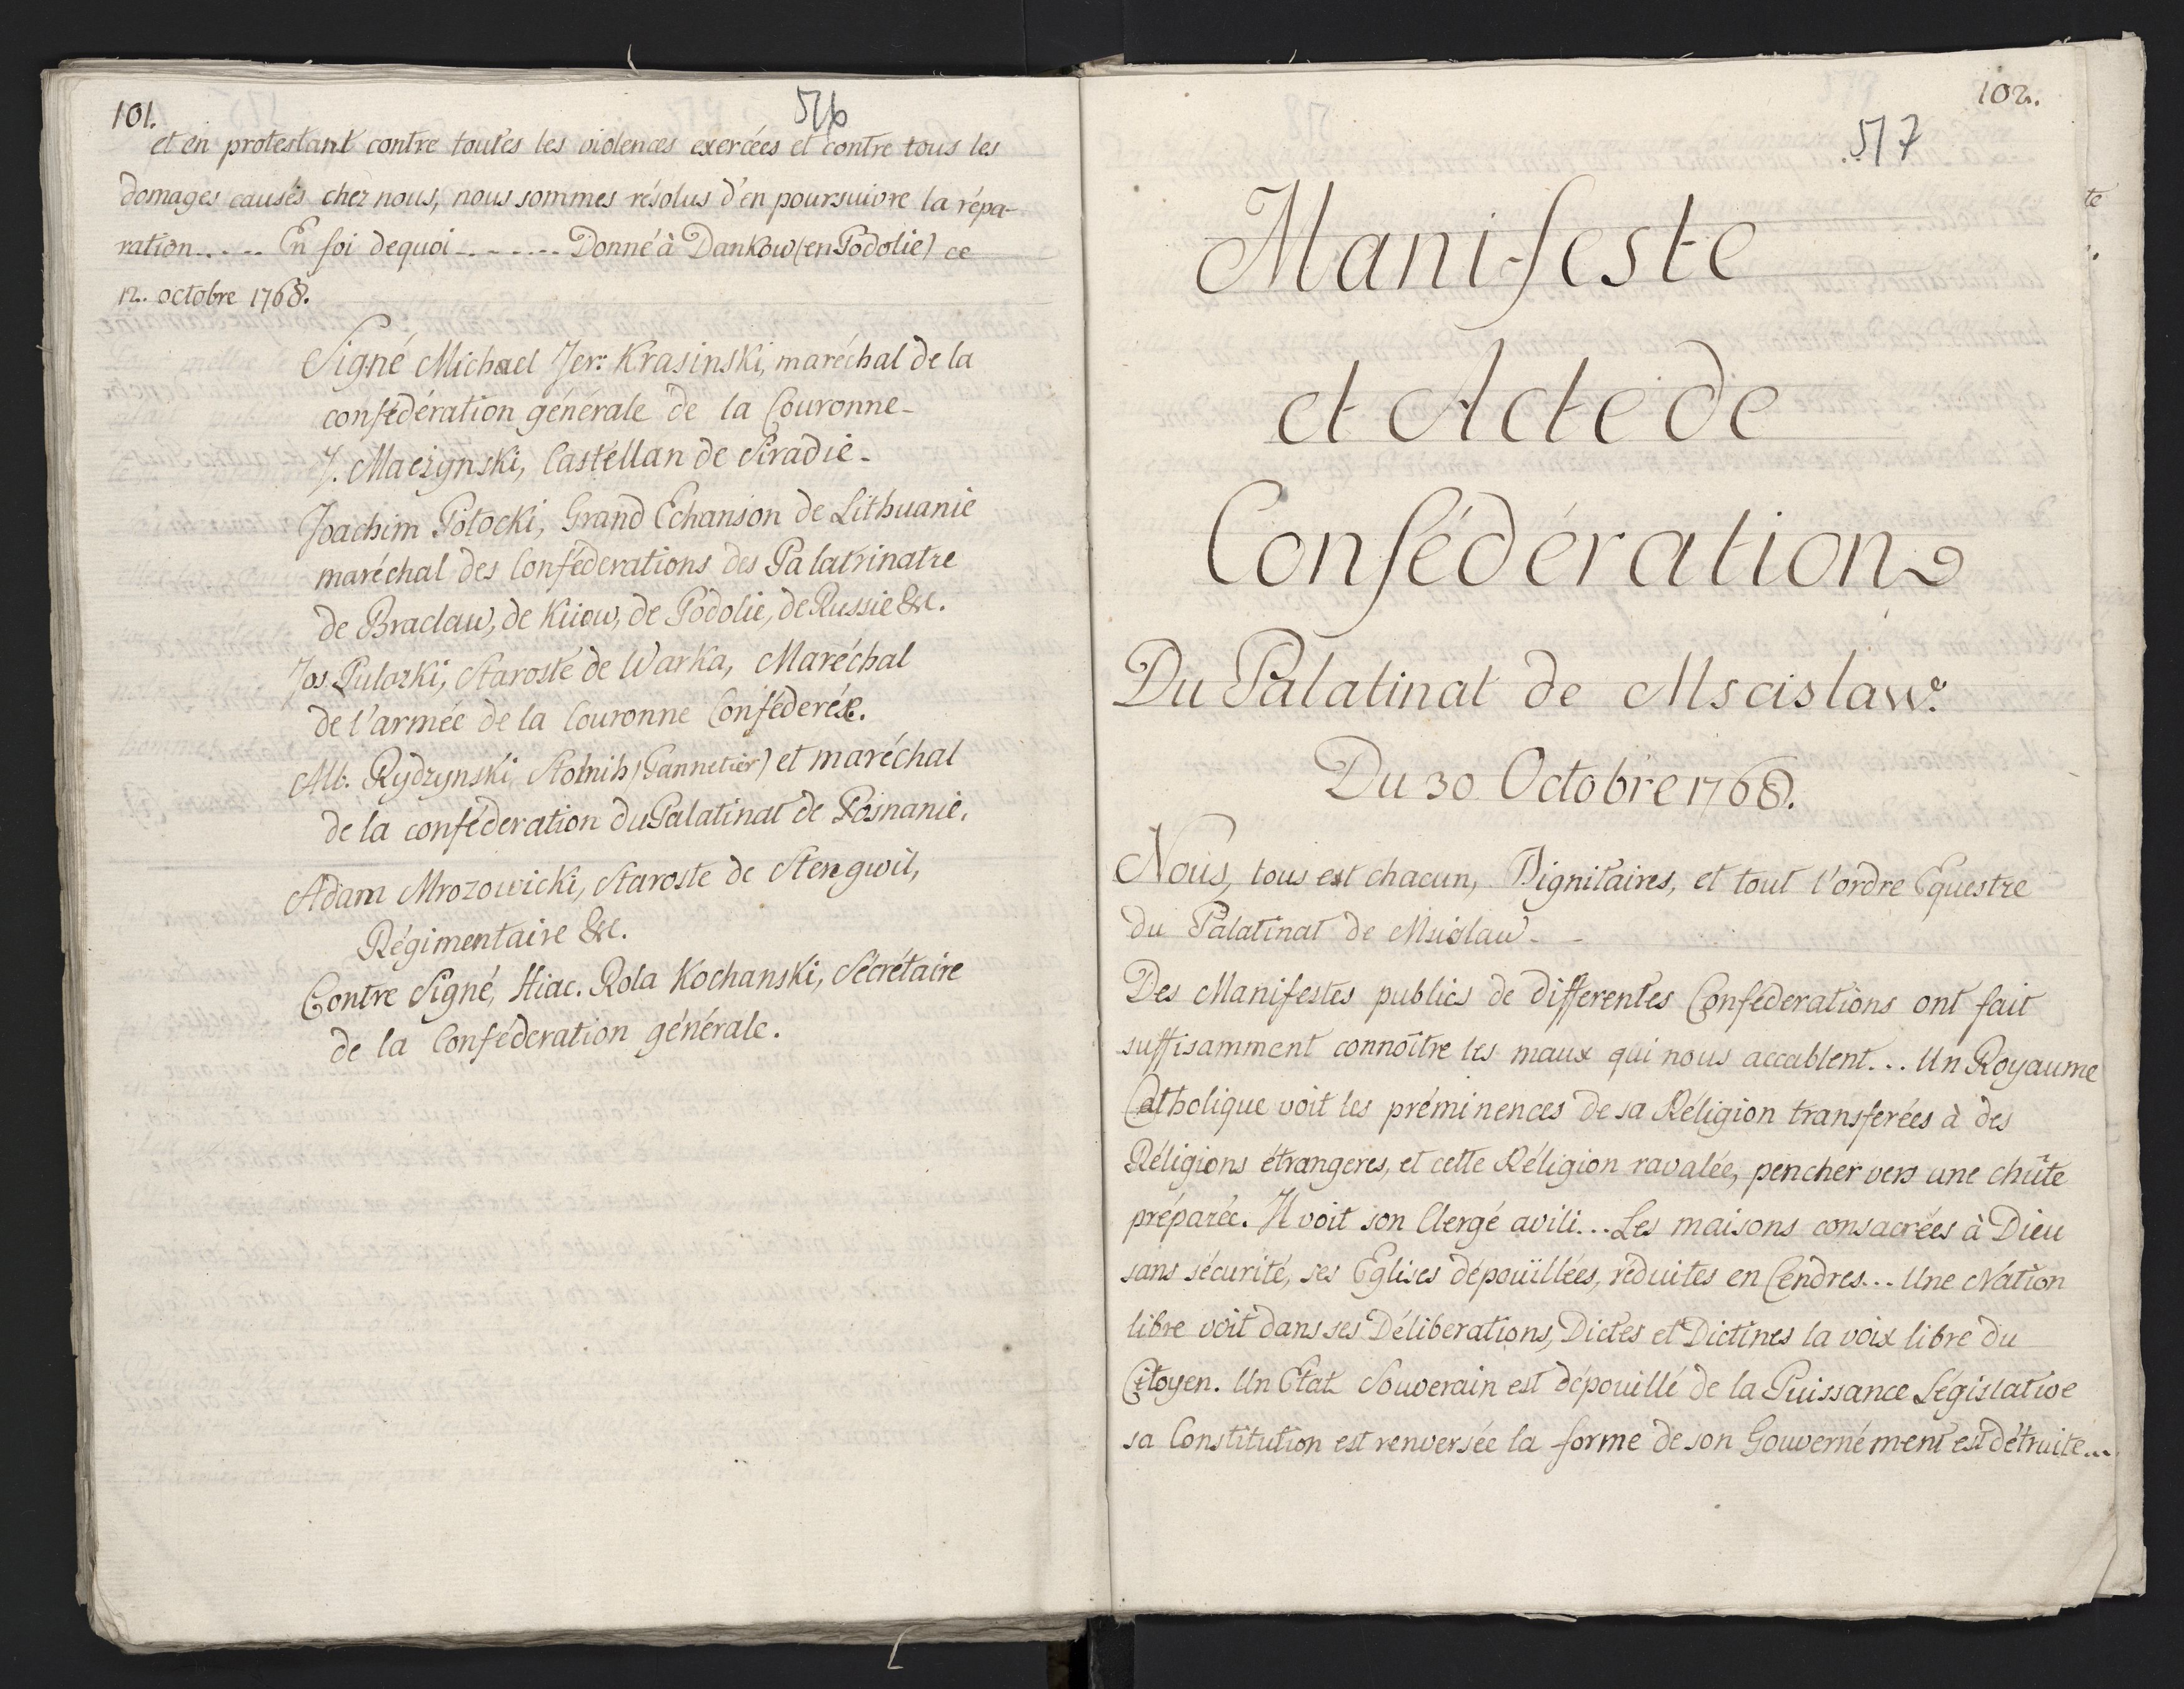 101.
516
et en protestant contre toutes les violences exercées et contre tous les
domages causés chez nous, nous sommes résolus d'en poursuivre la répa-
ration..... En foi dequoi ....... Donné à Dankow (en Podolie) ce
12. octobre 1768.
Signé Michael Jer: Krasinski, maréchal de la
confédération générale de la Couronne-
J. Maczynski, Castellan de Siradie-
Joachim Potocki, Grand Echanson de Lithuanie
maréchal des Conféderations des Palatrinatre
de Braclaw, de Kiiow, de Podolie, de Russie &c.
Jos. Pulazki, Staroste de Warka, Maréchal
de l'armée de la Couronne Conféderée.
Alb. Rydzynski, Stolnik (Pannetier) et maréchal
de la conféderation du Palatinat de Posnanie.
Adam Mrozowicki, Staroste de Stengwil,
Régimentaire &c.
Contre Signé, Hiac. Rola Kochanski, Sécrétaire
de la Conféderation générale.
102.
517
Manifeste
et Acte de
Confédération
Du Palatinat de Mscislaw.
Du 30 Octobre 1768.
Nous, tous est chacun, Dignitaires, et tout l'ordre Equestre
du Palatinat de Mscislaw--
Des Manifestes publics de differentes Conféderations ont fait
suffisamment connoître les maux qui nous accablent... Un Royaume
Catholique voit les préminences de sa Réligion transferées à des
Réligions étrangeres, et cette Réligion ravalée, pencher vers une chûte
préparée. Il voit son Clergé avili... Les maisons consacrées à Dieu
sans sécurité, ses Eglises dépouïllées, réduites en Cendres... Une Nation
libre voit dans ses Déliberations, Dietes et Dietines la voix libre du
Citoyen. Un Etat Souverain est dépouillé de la Puissance Législative
sa Constitution est renversée la forme de son Gouvernément est détruite...
te